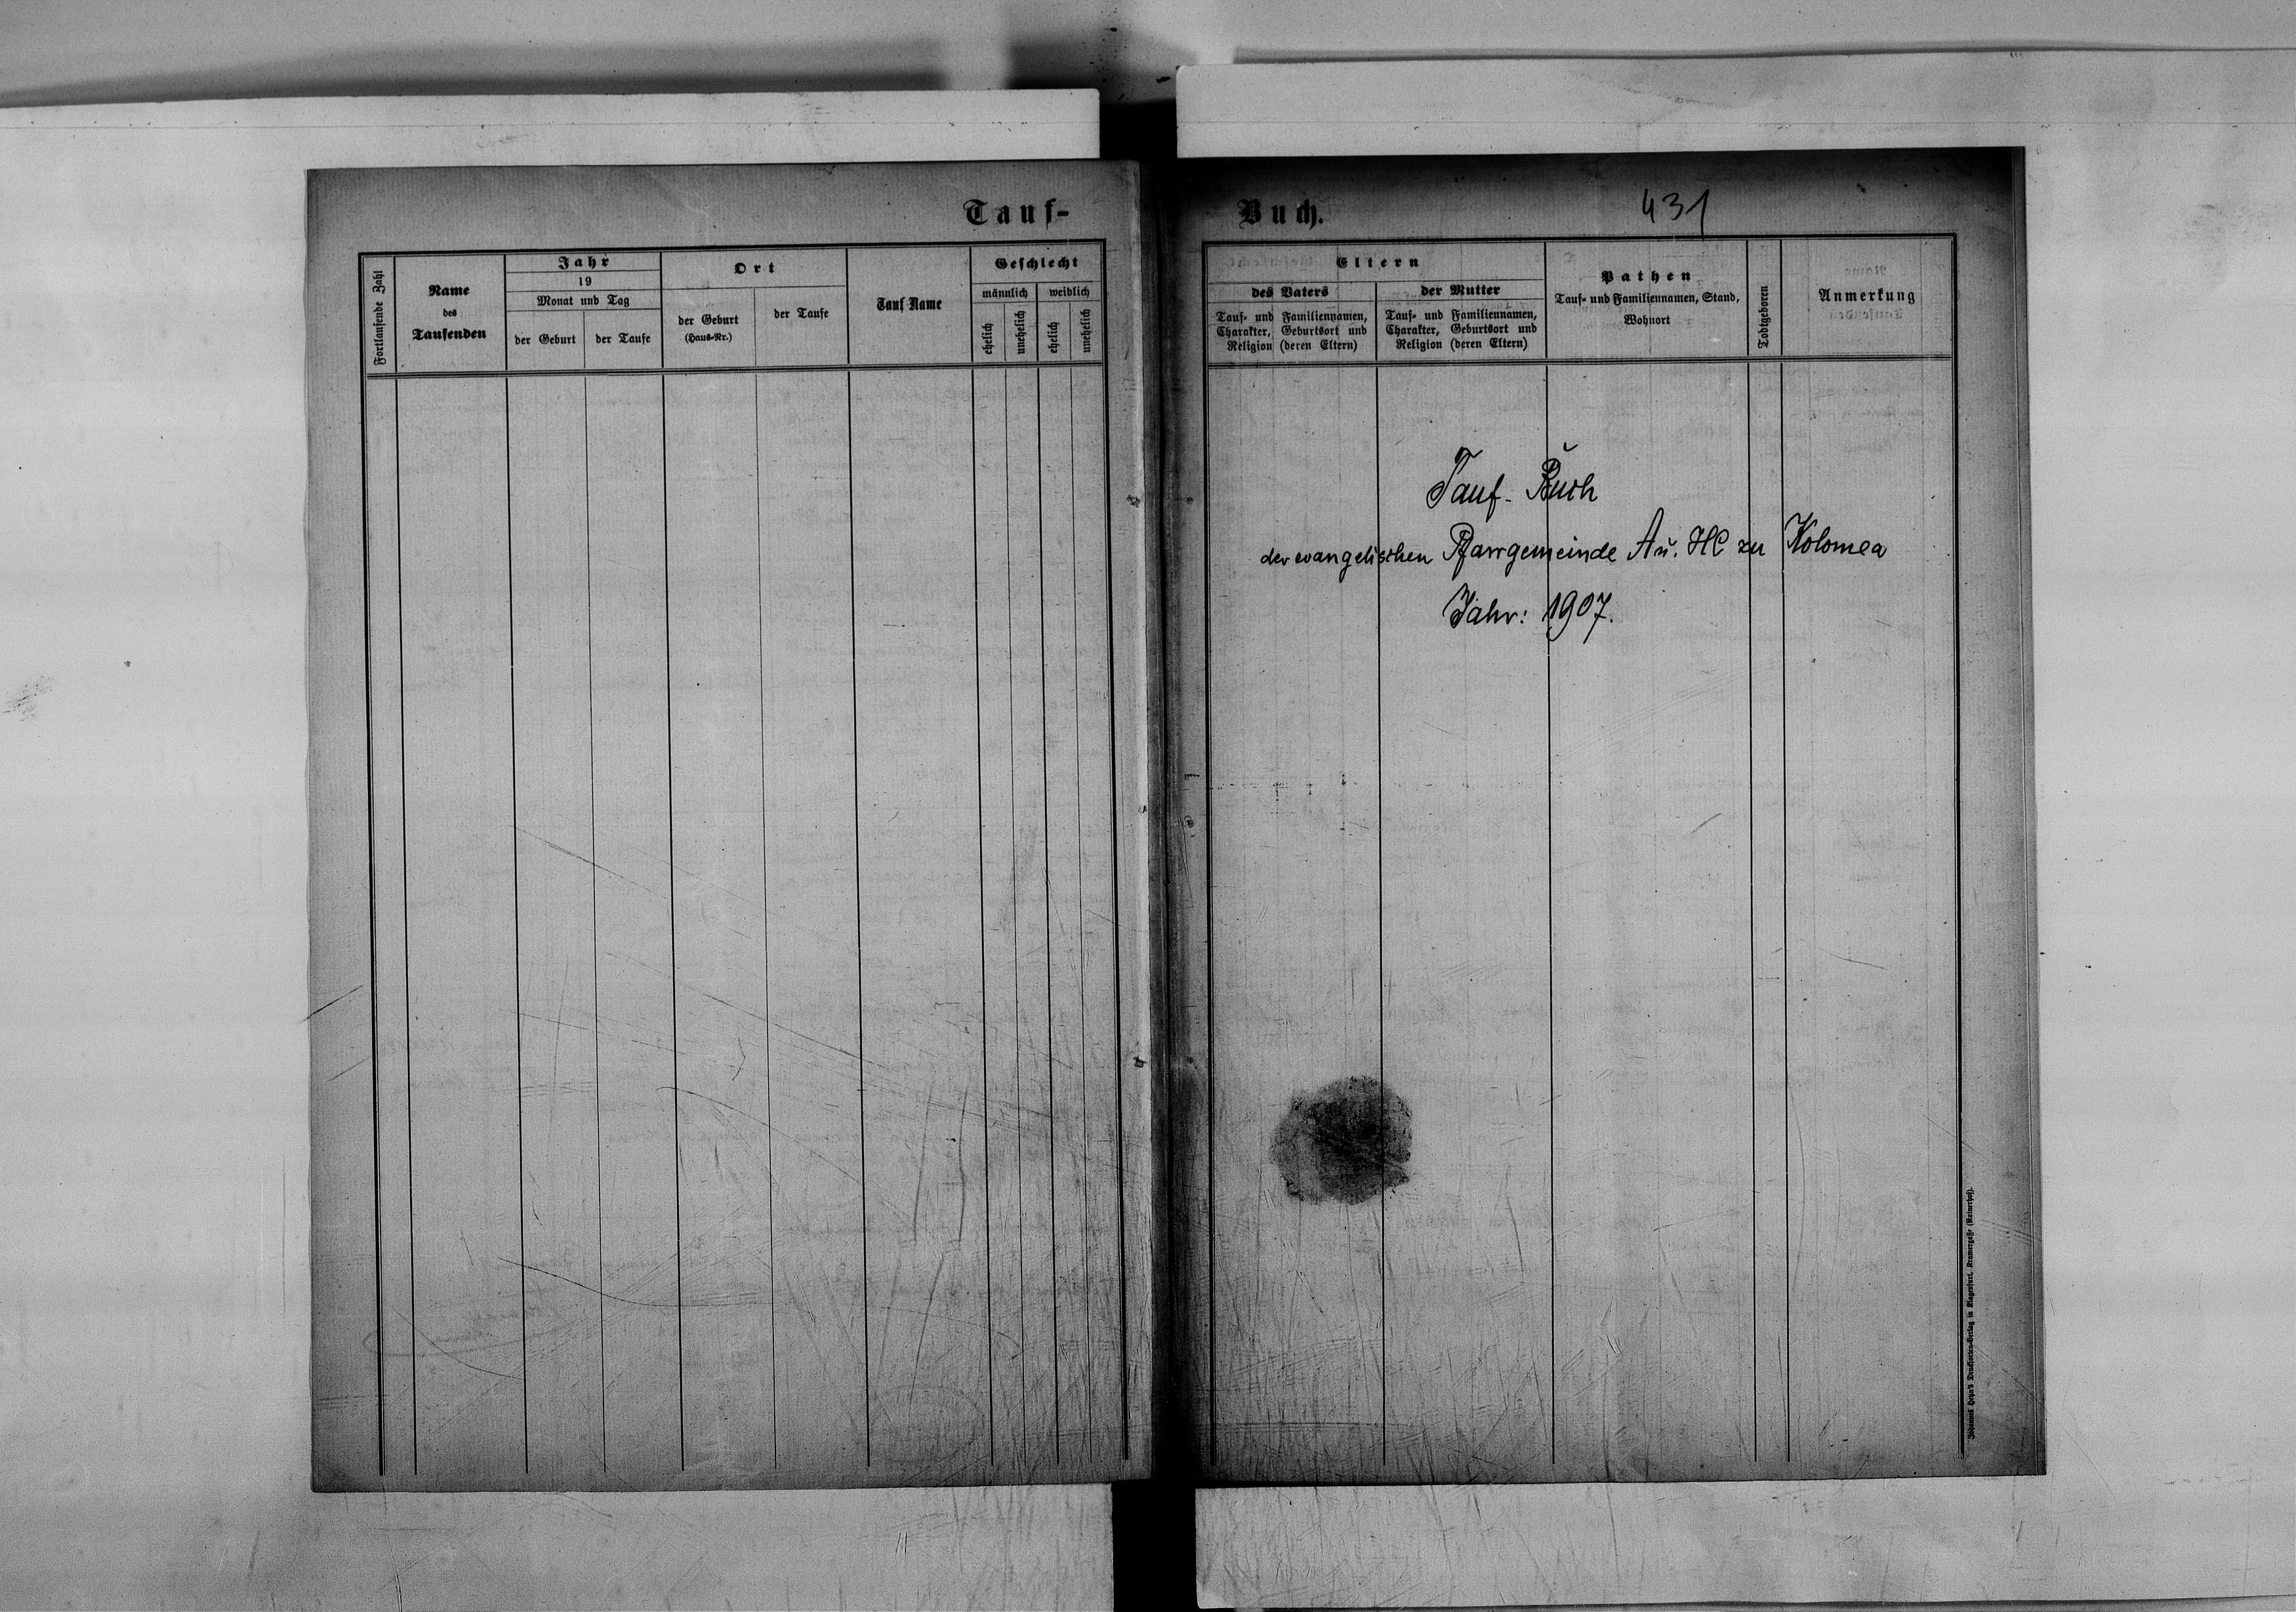 Tauf-
Fortlaufende Zahl
Name
des
Taufenden
Jahr
19
Monat und Tag
der Geburt
der Taufe
Ort
der Geburt
(Haus-Nr.)
der Taufe
Tauf-Name
Geschlecht
männlich
weiblich
ehelich
unehelich
ehelich
unehelich
Buch.
431
Eltern
des Vaters
Tauf- und Familiennamen,
Charakter, Geburtsort und
Religion (deren Eltern)
der Mutter
Tauf- und Familiennamen,
Charakter, Geburtsort und
Religion (deren Eltern)
Pathen
Tauf- und Familiennamen, Stand,
Wohnort
Todtgeboren
Anmerkung
Tauf-Buch
der evangelischen Pfarrgemeinde A u. HC zu Kolomea
Jahr: 1907.
Johannes Heyn's Drucksorten-Verlag in Klagenfurt, Kramergasse (Rainerhof).